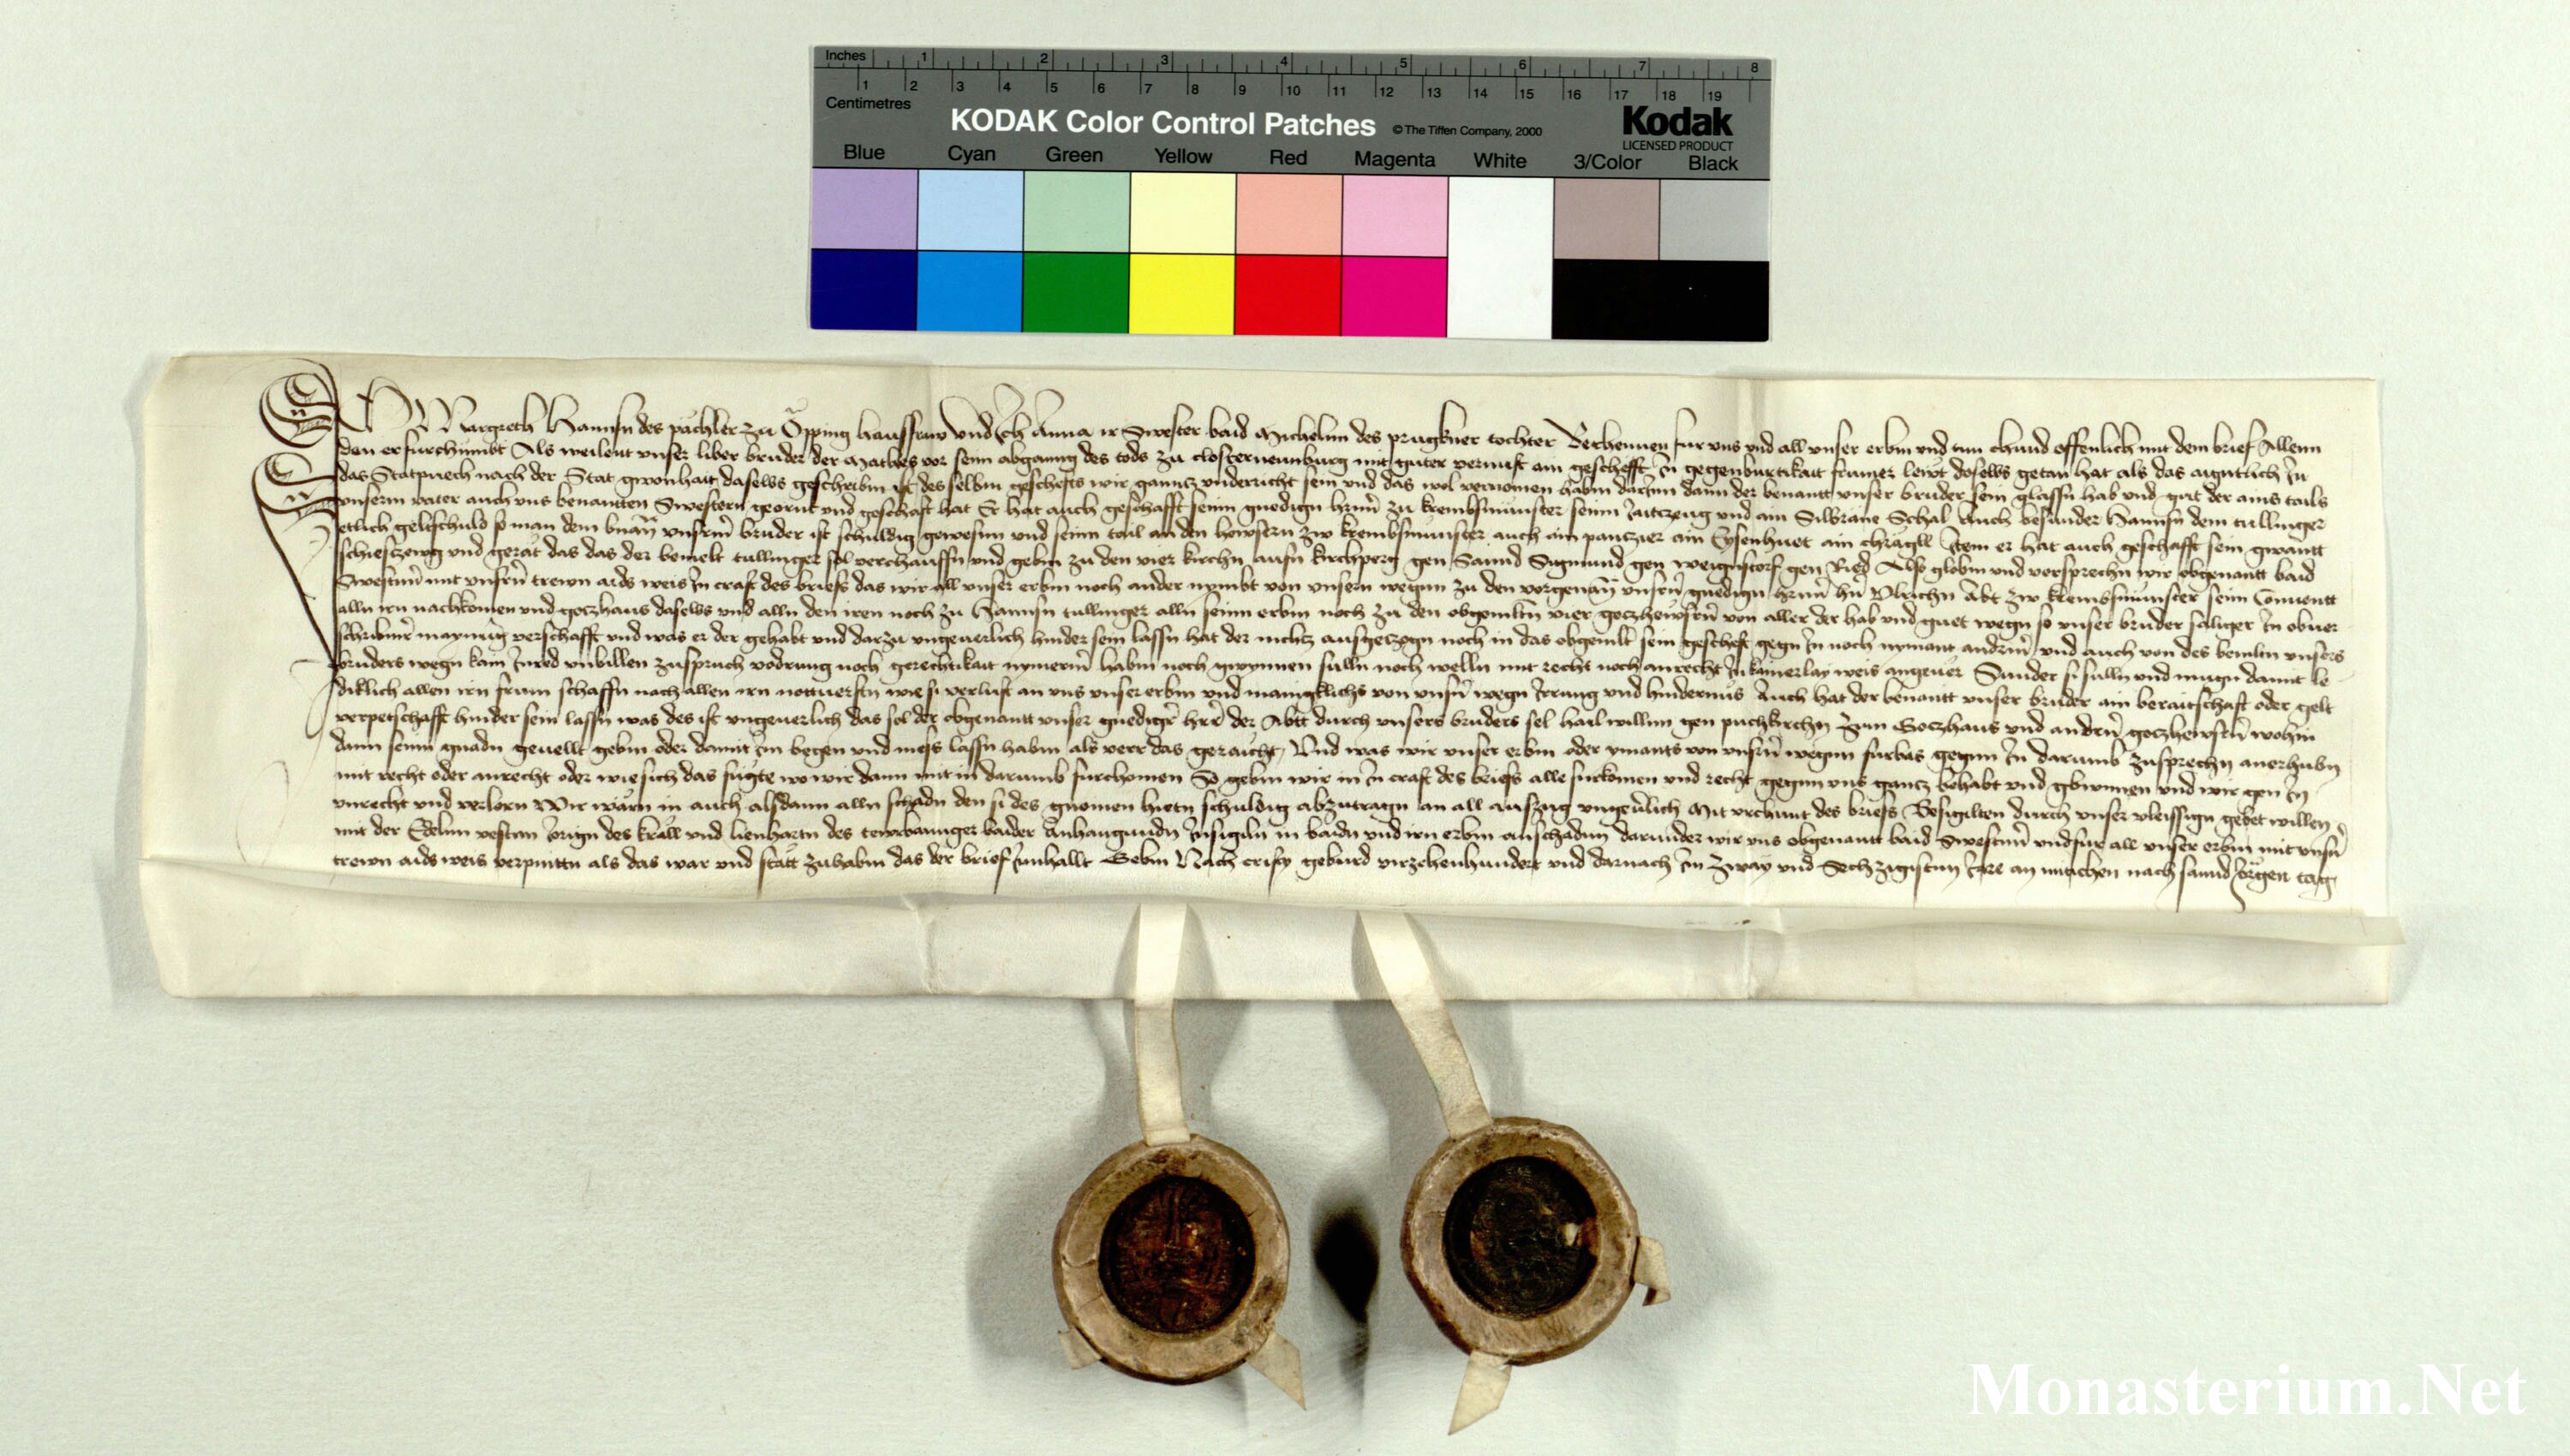 Inches 1 2 3 4 5 6 7 8
1 2 3 4 5 6 7 8 9 10 11 12 13 14 15 16 17 18 19
Centimetres
KODAK Color Control Patches © The Tiffen Company, 2000 Kodak
LICENSED PRODUCT
Blue Cyan Green Yellow Red Magenta White 3/Color Black
Ich Margreth Hannsn des pachler zu Öpping hausfraw Und Ich Anna ir Swester baid Michelnn des prugkner tochter Bechennen fur uns und all unser erbm und tun chund offenlich mit dem brief Allenn
den er furchumbt Als weilent unser liber bruder der Mathes vor seim abganng des tods zu closternewnburg mit guter vernuft ain geschefft In gegenburtikait frumer lewt daselbs getan hat als das aigntlich In
das Statpuech nach der Stat gwonhait daselbs geschribm ist des selbm gescheffts wir gantz underricht sein und das wol vernomen habm darInn dann der benantt unser bruder sein glassn hab und gut der ains tails
unserm vater auch uns benantten Swestern geornt und geschaft hat Er hat auch geschafft seinn gnedign hrnn zu krembsmunster seinn raitczeug und ain Silbraine Schal Auch besunder Hannsn dem tullinger
etlich geltschuld so man dem bnan unsrm bruder ist schuldig gewesnn und seinn tail an den hewsern zw krembsmunster auch ain panczier ain Eysenhuet ain chragll Item er hat auch geschafft sein gwantt
schiesczewg und gerat das das der bemelt tullinger sol verchauffn und gebm zu den vier kirchn aufn kirchperg gen Sannd Sigmund gen weignstorf gen Ried Also globm und versprechn wir obgenantt baid
Swestern mit unsrn trewn aids weis In craft des briefs das wir all unser erbm noch ander nymbt von unsern wegnn zu den vorgenan unsrn gnedign hrnn hn Ulrichn Abt zw krembsmunster seim Conventt
alln irn nachkomen und goczhaus daselbs und alln den iren noch zu Hannsn tullinger alln seinn erbm noch zu den obgemltn vier goczhewsern von aller der hab und guet wegn so unser bruder saliger In obner
verschafft und was er der gehabt und darzu ungeverlich hinder sein lassn hat der nichtz ausgeczogn noch in das obgemlt sein gescheft gegn In noch nymant andrm und auch von des bemltn unsers
bruders wegn kain Inred unbillen zuspruch vodrung noch gerechtikait nymerm habm noch gwynnen sulln noch welln mit recht noch anrecht In kainerlay weis angever Sunder si sulln und mugn damit le-
diklich allen irn frum schaffn nach allen irn notturfftn wie si verlust an uns unser erbm und manigklichs von unsn wegn Irrung und hindernus Auch hat der benantt unser bruder ain beraitschaft oder gelt
verpetschafft hinder sein lassn was des ist ungeverlich das sol der obgenantt unser gnediger hrr der Abtt durch unsers bruders sel hail willnn gen puchkirchn zum Goczhaus und andern goczhewsern wohin
dann seinn gnadn gevellt gebm oder damit Im begen und mess lassn habm als verr das geraicht Und was wir unser erbm oder ymants von unsrn wegnn furbas gegnn In darumb zusprechn anerhubn
mit recht oder anrecht oder wie sich das fugte wo wir dann mit in darumb furchomen So gebm wir in In craft des briefs alle furkomen und recht gegnn uns gancz behabt und gbunnen und wir gen In
unrecht und verlorn Wir warn in auch alsdann alln schadn den si des gnomen hietn schuldig abzutragn an all auszug ungevlich Mit urchunt des briefs Besigilten durch unser vleissign gebet willen
mit der Edelnn vestnn Jorign des krall und lienhartn des baider Anhangundn Insigiln in baidn und irn erbm anschadnn darunder wir uns obgenantt baid Swestern und fur all unser erbm mit unsn
trewn aids weis verpinttn als das war und statt zuhabm das der brief Innhallt Gebm Nach cristy geburd virzehenhundert und darnach Im zway und Sechzigistnn Jare an mitichen nach sannd Jorgen tag
Monasterium.Net